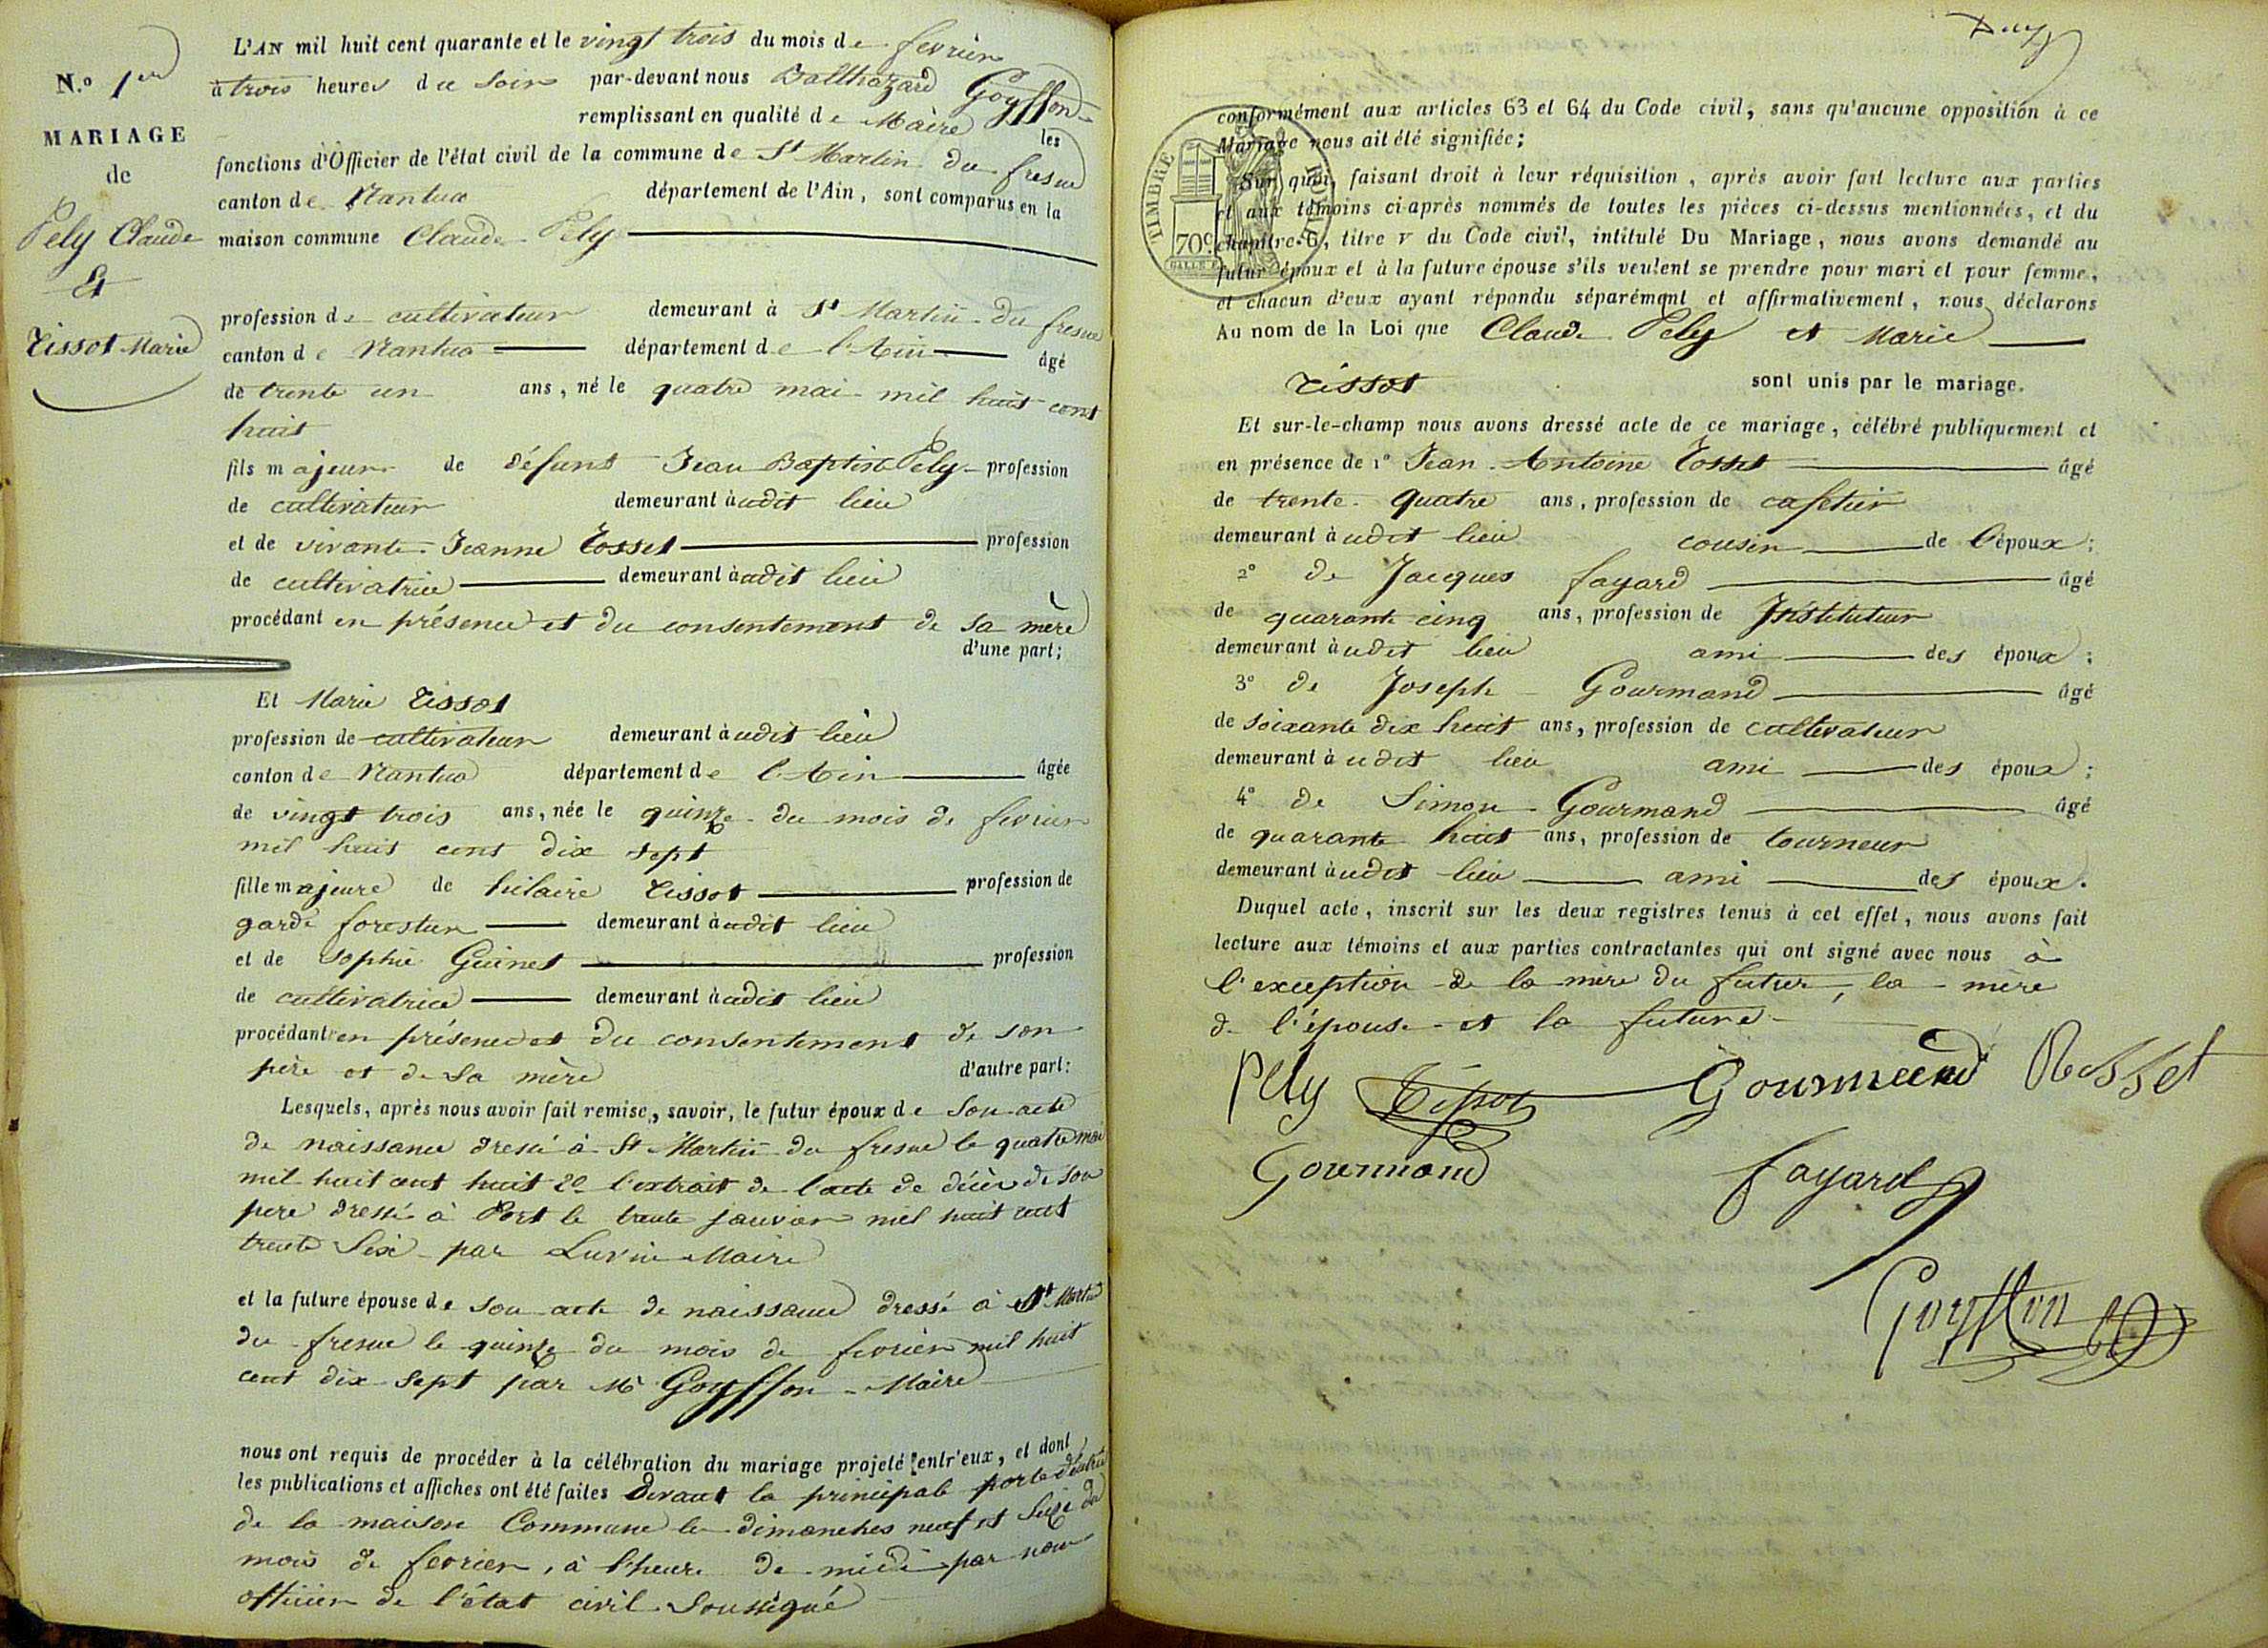 N.º 1er
MARIAGE
de
Pely Claude
Et
Tissot Marie
L'AN mil huit cent quarante et le vingt trois du mois de fevrier
à trois heures du soir par-devant nous Balthazard Goyffon
remplissant en qualité de Maire les
fonctions d'Officier de l'état civil de la commune de St Martin du fresne
canton de Nantua département de l'Ain, sont comparus en la
maison commune Claude Pely
profession de cultivateur demeurant à St Martin du fresne
canton de Nantua département de l'Ain âgé
de trente un ans, né le quatre mai mil huit cent
huit
fils majeur de défunt Jean Baptiste Pely profession
de cultivateur demeurant audit lieu
et de vivante Jeanne Rosset profession
de cultivatrice demeurant audit lieu
procédant en présence et du consentement de sa mère
d'une part;
Et Marie Tissot
profession de cultivateur demeurant audit lieu
canton de Nantua département de l'Ain âgée
de vingt trois ans, née le quinze du mois de fevrier
mil huit cent dix sept
fille majeure de hilaire Tissot profession de
garde forestier demeurant audit lieu
et de Sophie Guinet profession
de cultivatrice demeurant audit lieu
procédant en présence et du consentement de son
père et de sa mère d'autre part:
Lesquels, après nous avoir fait remise, savoir, le futur époux de Son acte
de naissance dressé à St Martin du fresne le quatre mai
mil huit cent huit 2º l'extrait de l'acte de décès de son
pere dressé à Port le trente janvier mil huit cent
trente Six par Maire
et la future épouse de son acte de naissance dressé à St Martin
du fresne le quinze du mois de fevrier mil huit
cent dix sept par Mr Goyffon Maire
nous ont requis de procéder à la célébration du mariage projeté entr'eux, et dont
les publications et affiches ont été faites devant la principale porte d'entrée
de la maison Commune les dimanches neuf et Seize du
mois de fevrier, à l'heure de midi par nous
officier de l'état civil Soussigné
TIMBRE ROYAL
70c
conformément aux articles 63 et 64 du Code civil, sans qu'aucune opposition à ce
Mariage nous ait été signifiée;
Sur quoi, faisant droit à leur réquisition, après avoir fait lecture aux parties
et aux témoins ci-après nommés de toutes les pièces ci-dessus mentionnées, et du
chapitre 6, titre v du Code civil, intitulé Du Mariage, nous avons demandé au
futur époux et à la future épouse s'ils veulent se prendre pour mari et pour femme,
et chacun d'eux ayant répondu séparément et affirmativement, nous déclarons
Au nom de la Loi que Claude Pely et Marie
Tissot sont unis par le mariage.
Et sur-le-champ nous avons dressé acte de ce mariage, célébré publiquement et
en présence de 1º Jean Antoine Rosset âgé
de trente quatre ans, profession de cafetier
demeurant audit lieu cousin de l'époux;
2º de Jacques fayard âgé
de quarante cinq ans, profession de Instituteur
demeurant audit lieu ami des époux;
3º de Joseph Gourmand âgé
de soixante dix huit ans, profession de cultivateur
demeurant audit lieu ami des époux;
4º de Simon Gourmand âgé
de quarante huit ans, profession de tourneur
demeurant audit lieu ami des époux.
Duquel acte, inscrit sur les deux registres tenus à cet effet, nous avons fait
lecture aux témoins et aux parties contractantes qui ont signé avec nous à
l'exception de la mère du futur, la mère
de l'épouse et la future
Pely Tissot Gourmand Rosset
Gourmand fayard
Goyffon